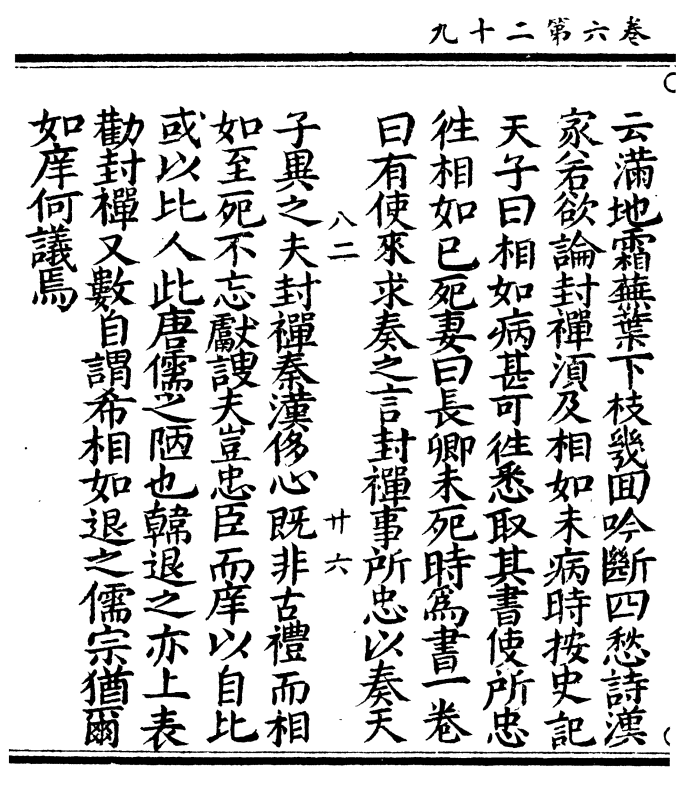 卷六第二十九
云滿地霜蕪葉下枝幾囬吟斷四愁詩漢
家若欲論封禪湏及相如未病時按史記
天子曰相如病甚可徃悉取其書使所忠
徃相如已死妻曰長卿未死時爲書一卷
曰有使來求奏之言封禪事所忠以奏天
八二
廿六
子異之夫封禪秦漢侈心既非古禮而相
如至死不忘獻諛夫豈忠臣而庠以自比
或以比人此唐儒之陋也韓退之亦上表
勸封禪又數自謂希相如退之儒宗猶爾
如庠何議焉